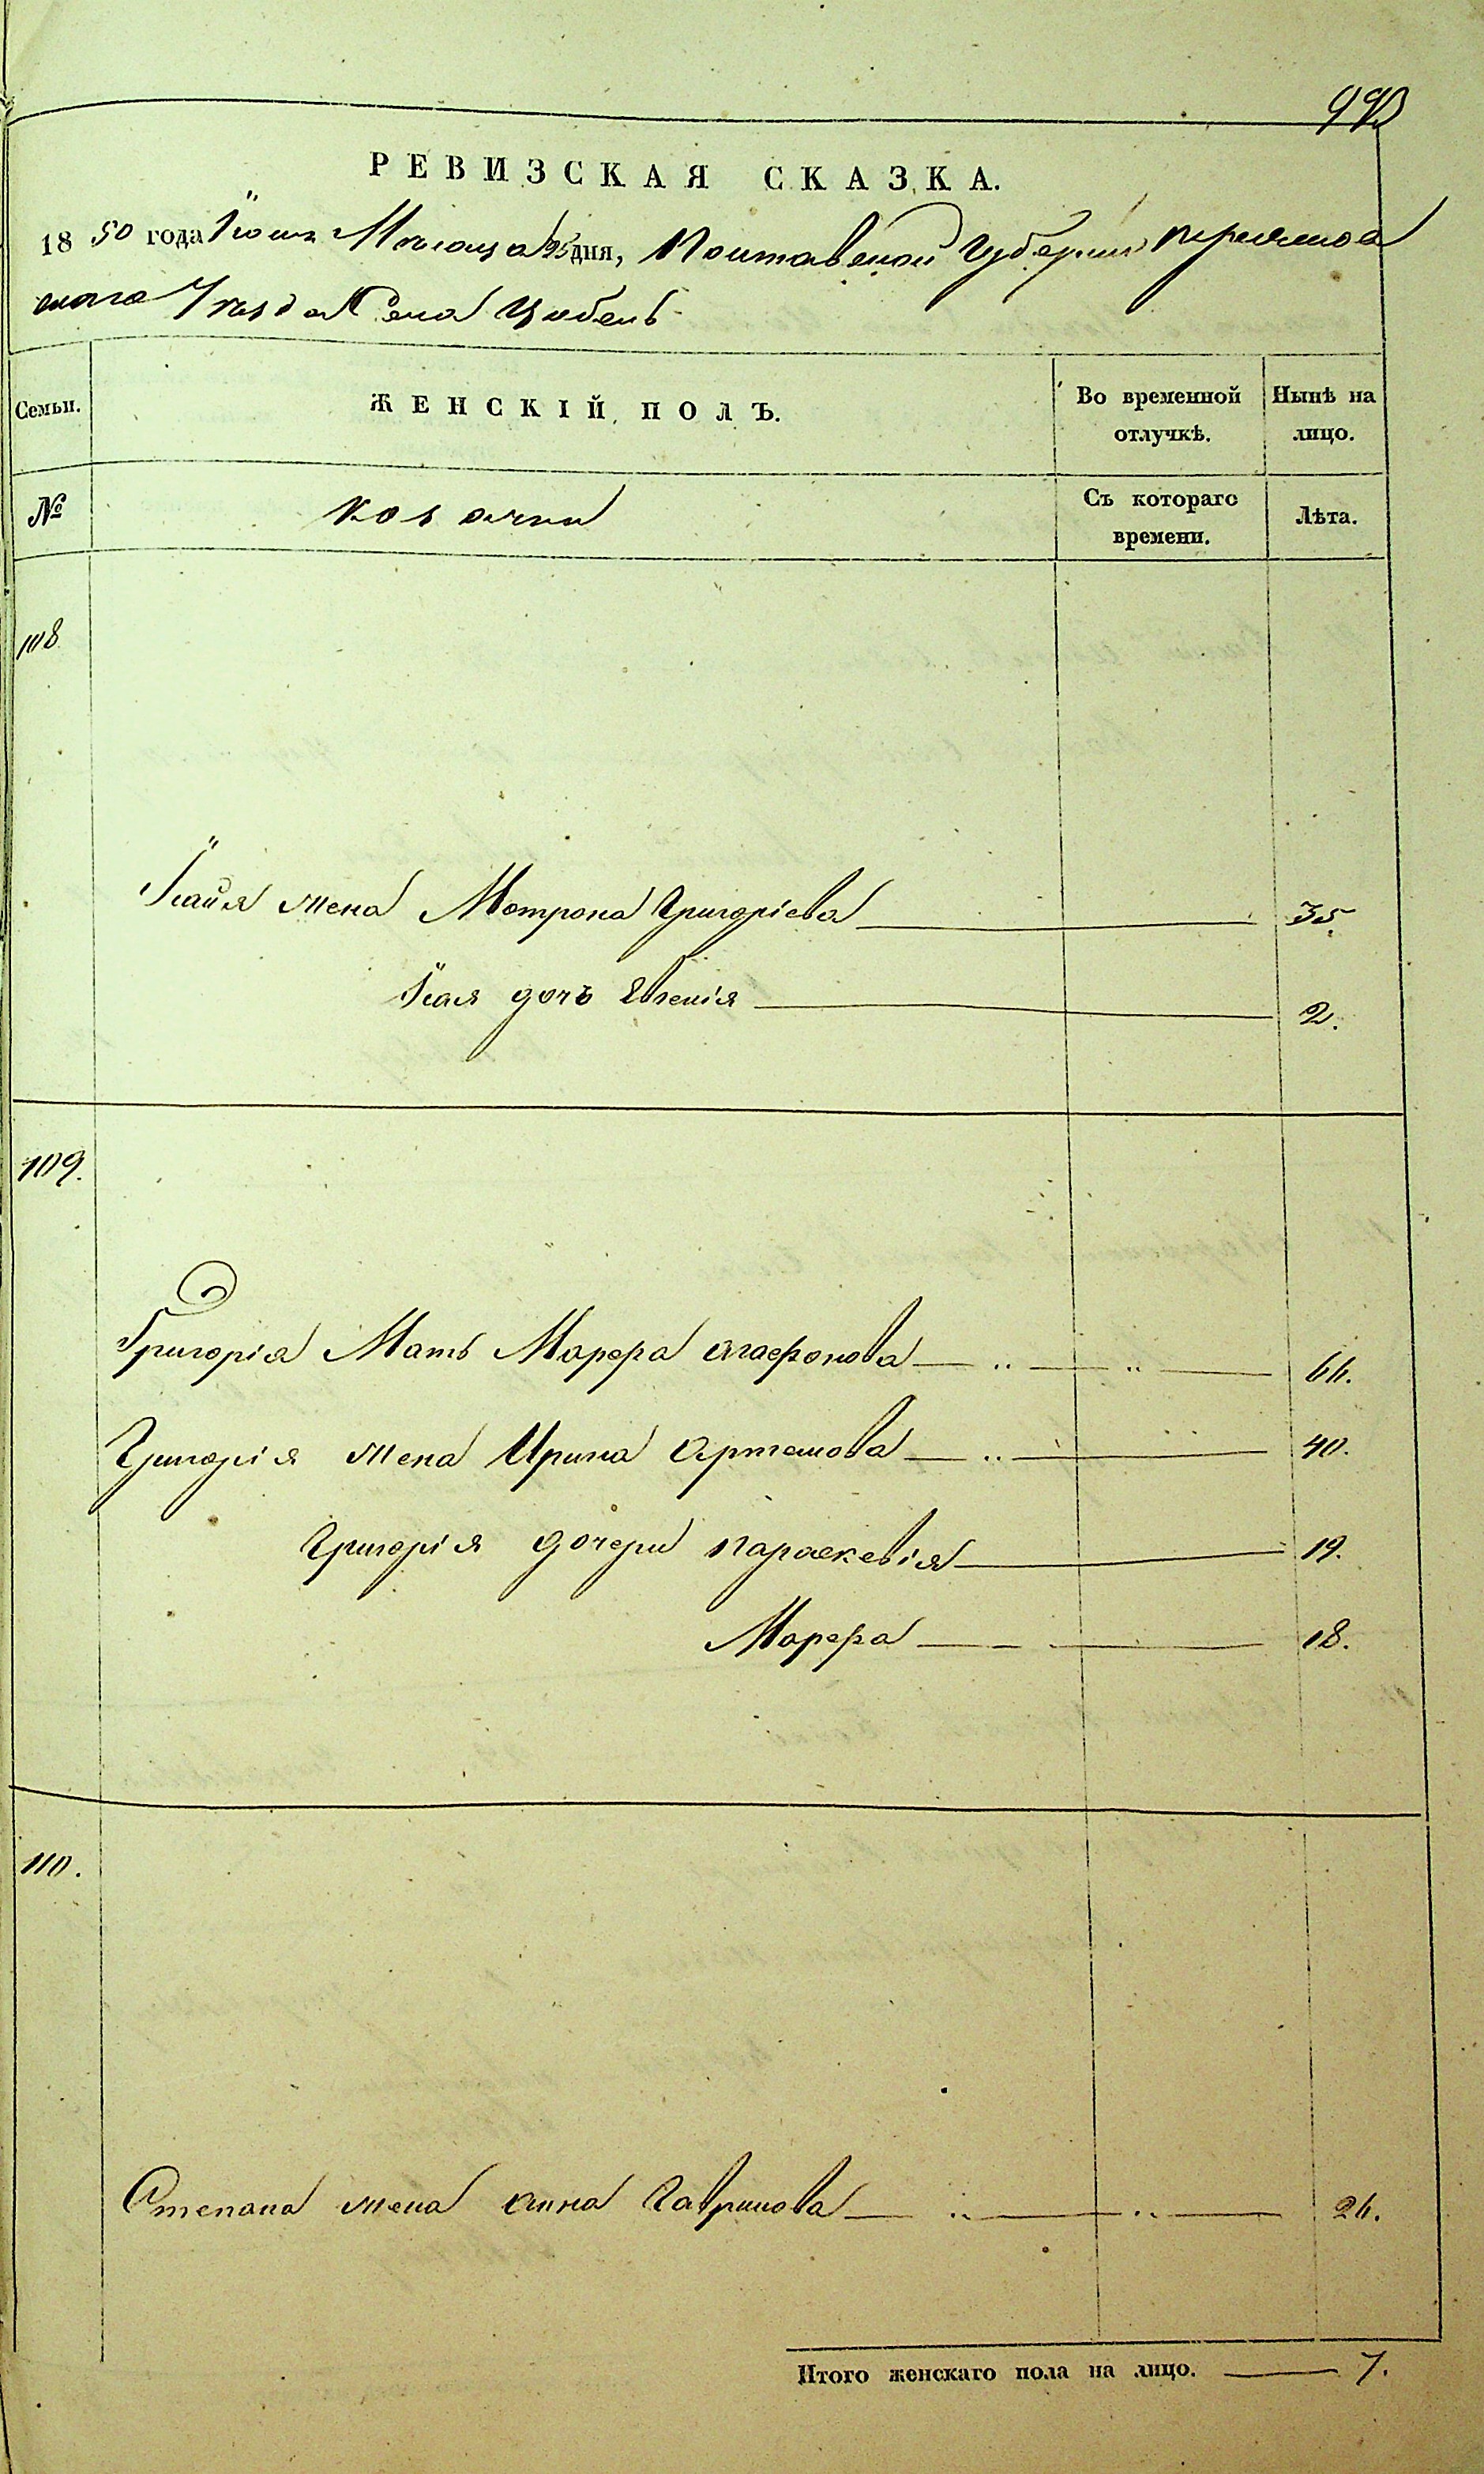 993
РЕВИЗСКАЯ СКАЗКА.
1850 года Іюня Мѣсяца 25 дня, Полтавской Губерніи Переяслов
скаго Уѣзда Села Цибель
Семьи.
ЖЕНСКІЙ ПОЛЪ.
Во временной
отлучкѣ.
Нынѣ на
лицо.
№
козачки
Съ котораго
времени.
Лѣта.
108
жена Мотрона Григоріева 35.
дочь Евгенія 2.
109.
Григорія Мать Марфа Агафонова 66.
Григорія жена Ирина Артемова 40.
Григорія дочери Параскевія 19.
Марфа 18.
110.
Степана жена Анна Гаврилова 26.
Итого женскаго пола на лицо. 7.